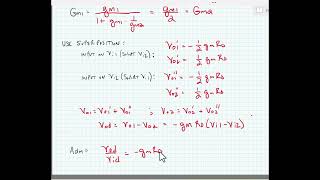 Gm1 = gm1 / (1 + gm1 · 1/gm2) = gm1/2 = Gm2
USE SUPERPOSITION:
INPUT ON Vi1 (SHORT Vi2) Vo1' = -1/2 gm RD
Vo2' = 1/2 gm RD
INPUT ON Vi2 (SHORT Vi1) Vo1'' = 1/2 gm RD
Vo2'' = -1/2 gm RD
Vo1 = Vo1' + Vo1'' ; Vo2 = Vo2' + Vo2''
Vod = Vo1 - Vo2 = -gm RD (Vi1 - Vi2)
Adm = Vod/Vid = -gm RD